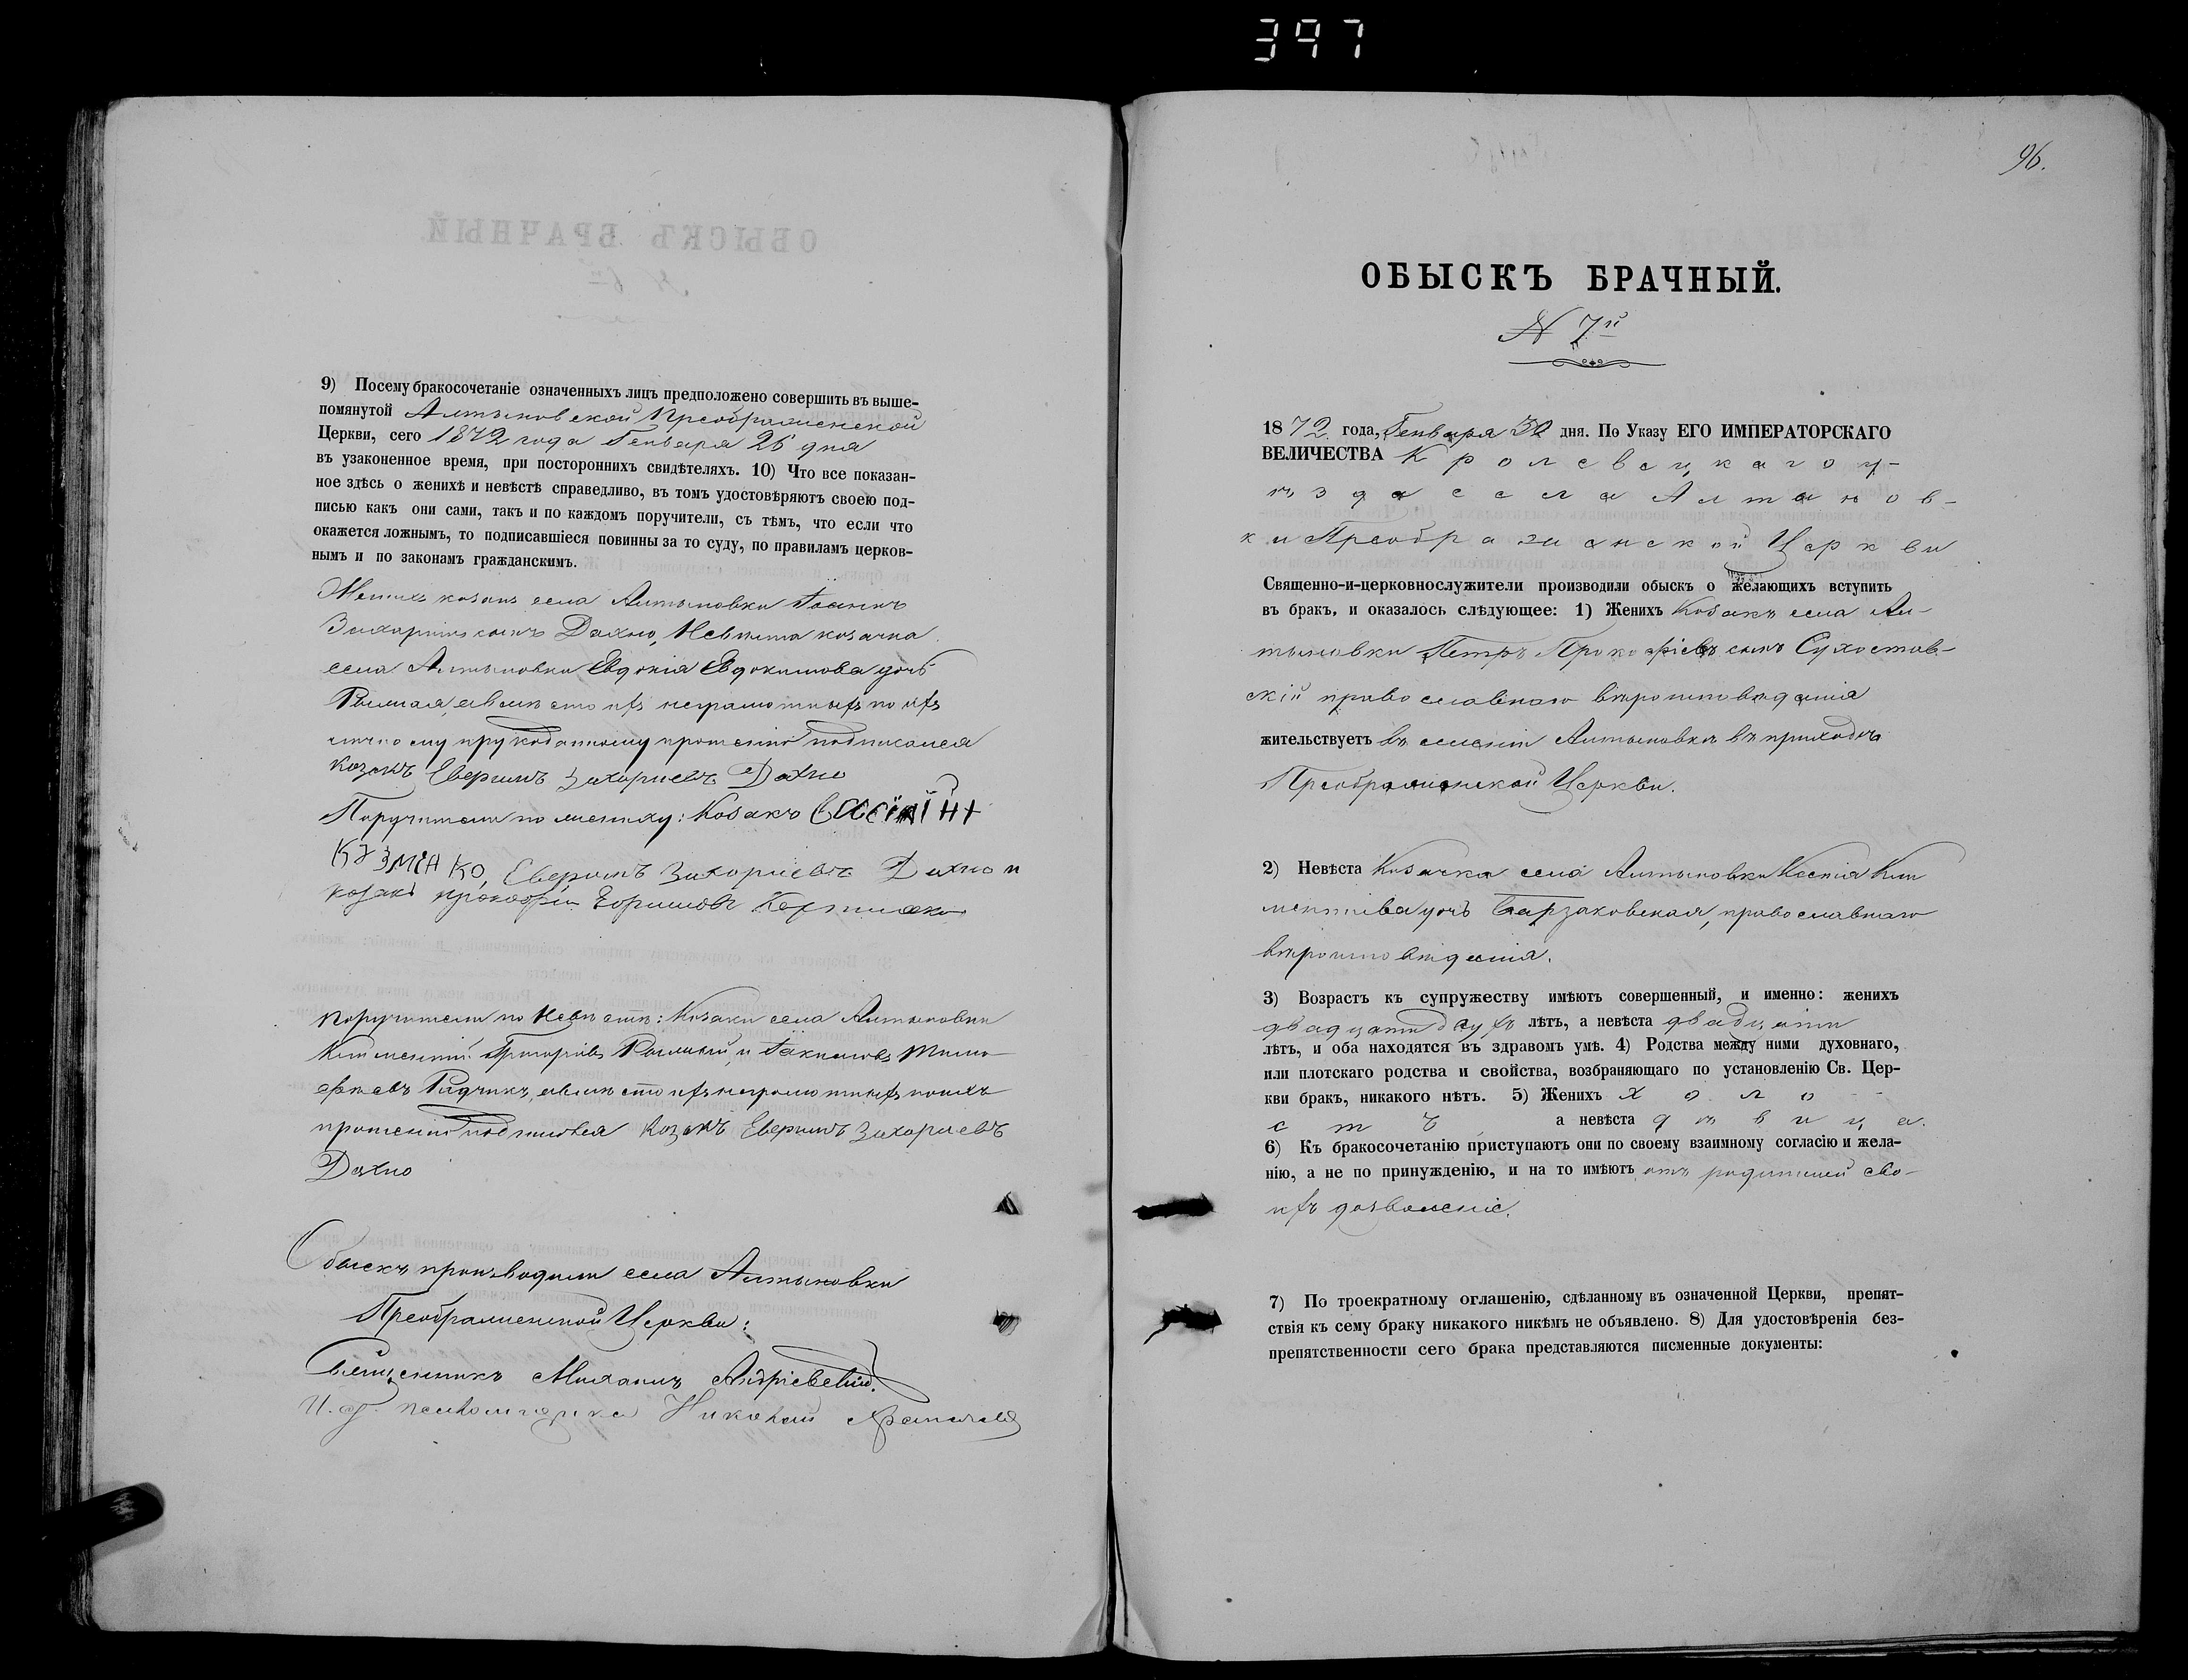 397
9) Посему бракосочетаніе означенныхъ лицъ предположено совершить въ выше-
помянутой Алтыновской Преображенской
Церкви, сего 1872 года Генваря 26 дня
въ узаконенное время, при постороннихъ свидѣтеляхъ. 10) Что все показан-
ное здѣсь о женихѣ и невѣстѣ справедливо, въ томъ удостовѣряютъ своею под-
писью какъ они сами, такъ и по каждомъ поручители, съ тѣмъ, что если что
окажется ложнымъ, то подписавшіеся повинны за то суду, по правиламъ церков-
нымъ и по законамъ гражданскимъ.
Женихъ козакъ села Алтыновки Іоаннъ
Захаріинъ сынъ Дахно, Невѣста козачка
села Алтыновки Евдокія Евдокимова дочь
а вмѣсто ихъ неграмотныхъ по ихъ
личному прошенію подписался
козакъ Еверимъ Захариевъ Дахно
Поручители по жениху: Козакъ
КУЗМЕНКО, Еверимъ Захариевъ Дахно и
козакъ прокофій
Поручители по Невѣстѣ: Козаки села Алтыновки
Климентій Григоріевъ и Іакимовъ Тимо-
феевъ Радчикъ, а вмѣсто ихъ неграмотныхъ по ихъ
прошенію подписался Козакъ Еверимъ Захариевъ
Дахно
Обыскъ производили села Алтыновки
Преображенской Церкви:
Священникъ Михаилъ Андріевскій.
И. д. псаломщика Николай
96.
ОБЫСКЪ БРАЧНЫЙ.
N 7й
1872 года, Генваря 30 дня. По Указу ЕГО ИМПЕРАТОРСКАГО
ВЕЛИЧЕСТВА Кролевецкаго у-
ѣзда села Алтынов-
ки Преображенской Церкви
Священно-и-церковнослужители производили обыскъ о желающихъ вступить
въ бракъ, и оказалось слѣдующее: 1) Женихъ Козакъ села Ал-
тыновки Петръ Прокофіевъ сынъ Сухостав-
скій православнаго вѣроисповѣданія
жительствуетъ въ селеніи Алтыновкѣ въ приходѣ
Преображенской Церкви.
2) Невѣста Козачка села Алтыновки Ксенія Кли
ментіева дочь Барзаковская, православнаго
вѣроисповѣданія.
3) Возрастъ къ супружеству имѣютъ совершенный, и именно: женихъ
двадцати двухъ лѣтъ, а невѣста двадцати
лѣтъ, и оба находятся въ здравомъ умѣ. 4) Родства между ними духовнаго,
или плотскаго родства и свойства, возбраняющаго по установленію Св. Цер-
кви бракъ, никакого нѣтъ. 5) Женихъ холо-
стъ, а невѣста дѣвица.
6) Къ бракосочетанію приступаютъ они по своему взаимному согласію и жела-
нію, а не по принужденію, и на то имѣютъ отъ родителей сво-
ихъ дозволеніе.
7) По троекратному оглашенію, сдѣланному въ означенной Церкви, препят-
ствія къ сему браку никакого никѣмъ не объявлено. 8) Для удостовѣренія без-
препятственности сего брака представляются писменные документы: